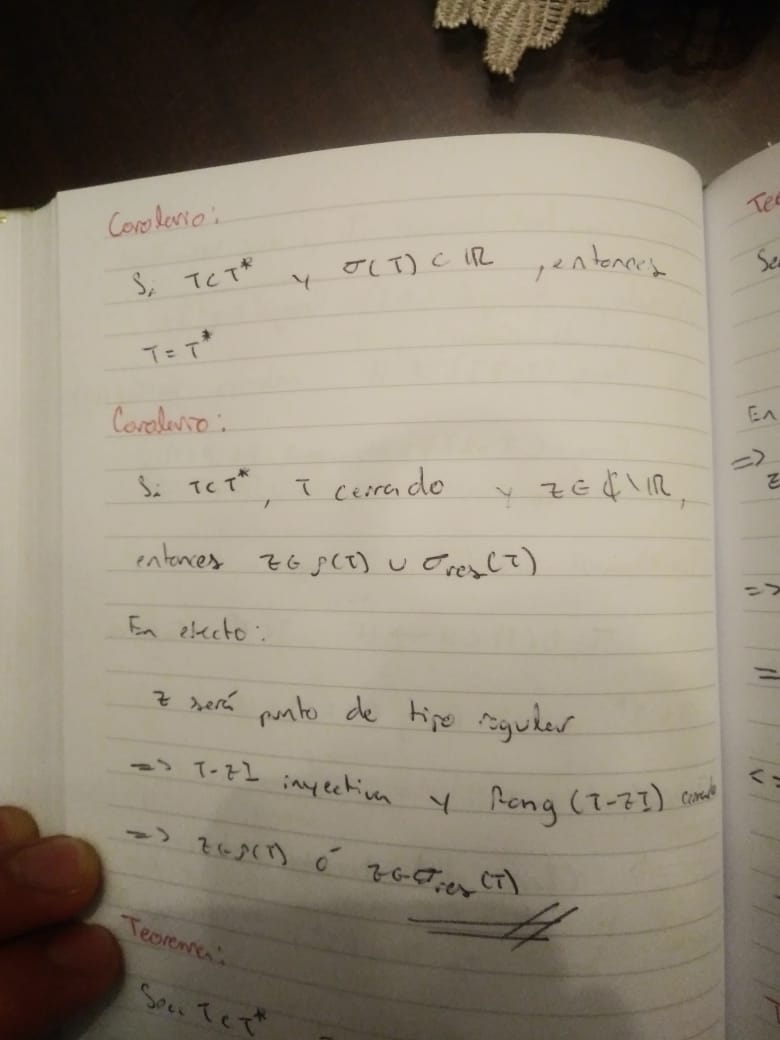 Corolario:
Si T⊂T* y σ(T) ⊂ ℝ, entonces
T = T*
Corolario:
Si T⊂T*, T cerrado y z ∈ ℂ\ℝ,
entonces z ∈ ρ(T) ∪ σres(T)
En efecto:
z será punto de tipo regular
=> T-zI inyectiva y Rang (T-zI) cerrado
=> z∈ρ(T) ó z∈σres(T)
Teorema:
Sea T⊂T*
Se
En
=>
z
=>
=